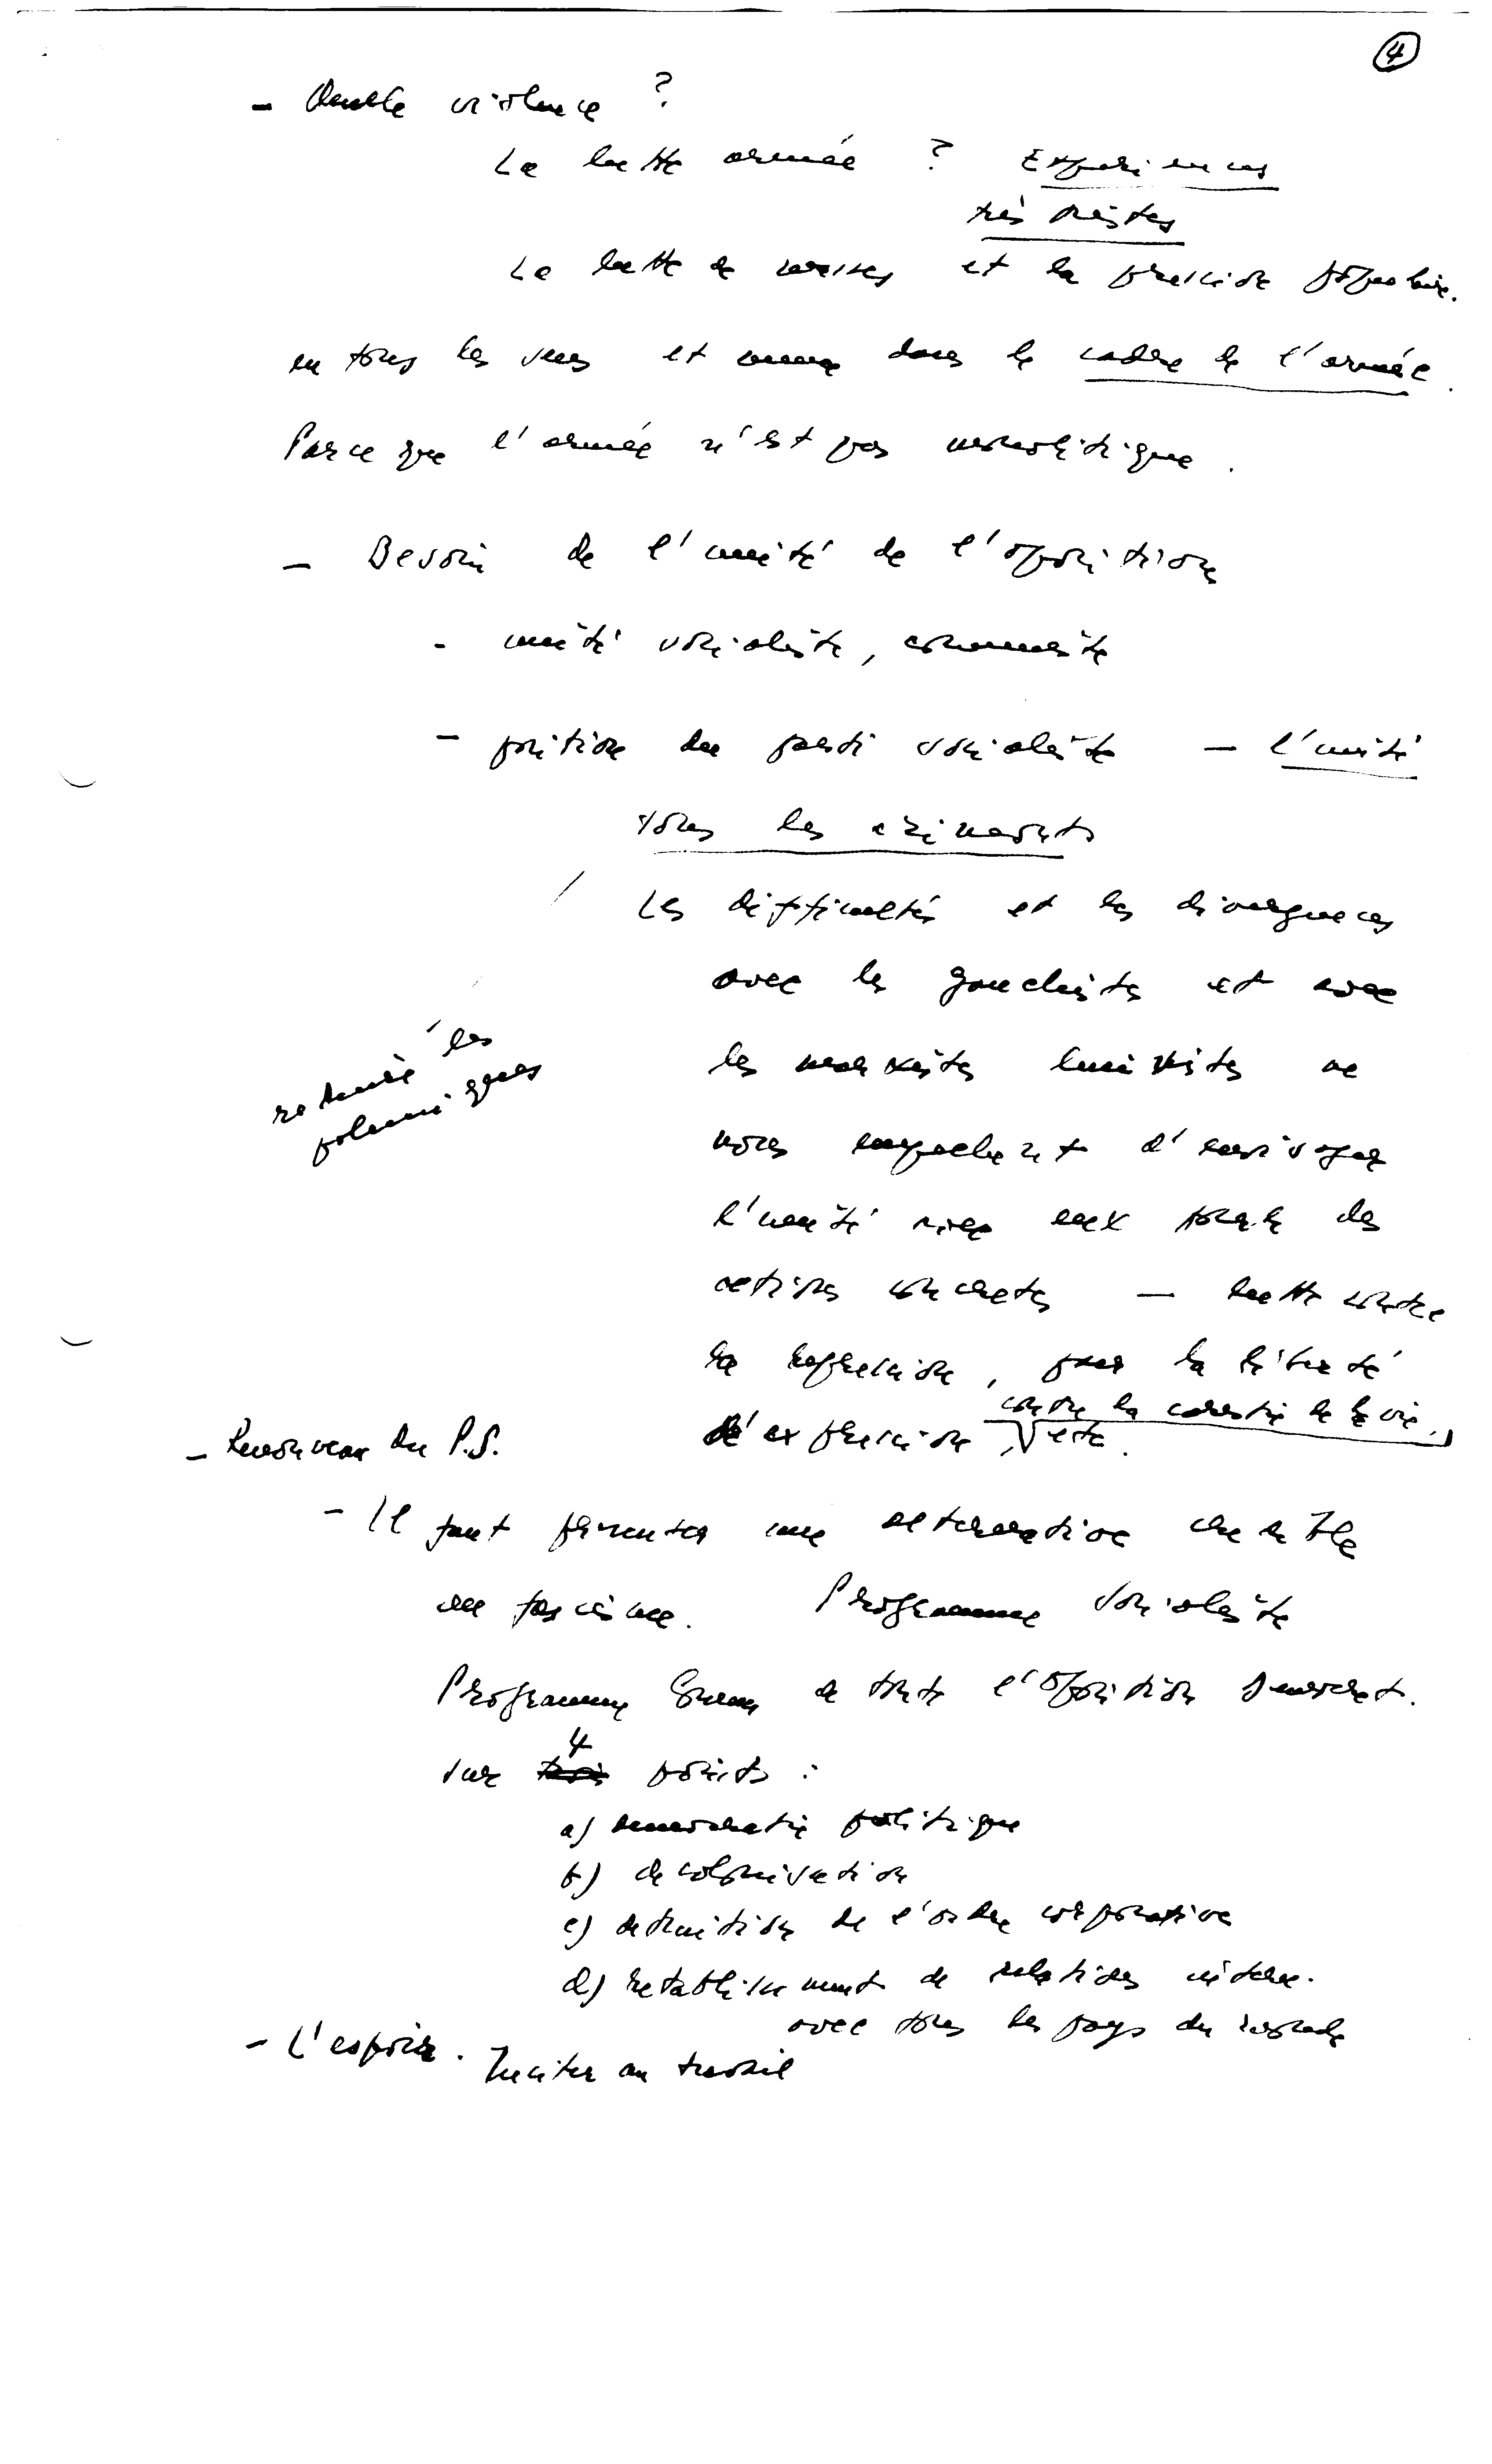 4
- Quelle violence ?
La lutte armée ? Experiences
très tristes
La lutte de masses et la pression populaire.
en tous les sens et meme dans le cadre de l'armée.
Parce que l'armée n'est pas monolitique.
- Besoin de l'unité de l'oposition
- unité socialiste, comuniste
- position du parti socialiste - l'unité
sous les
Les difficultés et les divergences
avec les gauchistes et avec
les marxistes leninistes ne
nous empechent d'envisager
l'unité avec eux sous des
actions concretes - lutte contre
la repression, pour la liberté
d'expression, contre la carestie de la vie, etc.
retour à les
polemiques
- Renouveau du P.S.
- Il faut présenter une alternative credible
au fascisme. Programme Socialiste
Programme Comum de toute l'Oposition Democrat.
sur 4 points :
a) democratie politique
b) decolonisation
c) destruition de l'ordre corporative
d) retablissement de relations intern.
avec tous les pays du monde
- L'espoir. Inciter au travail